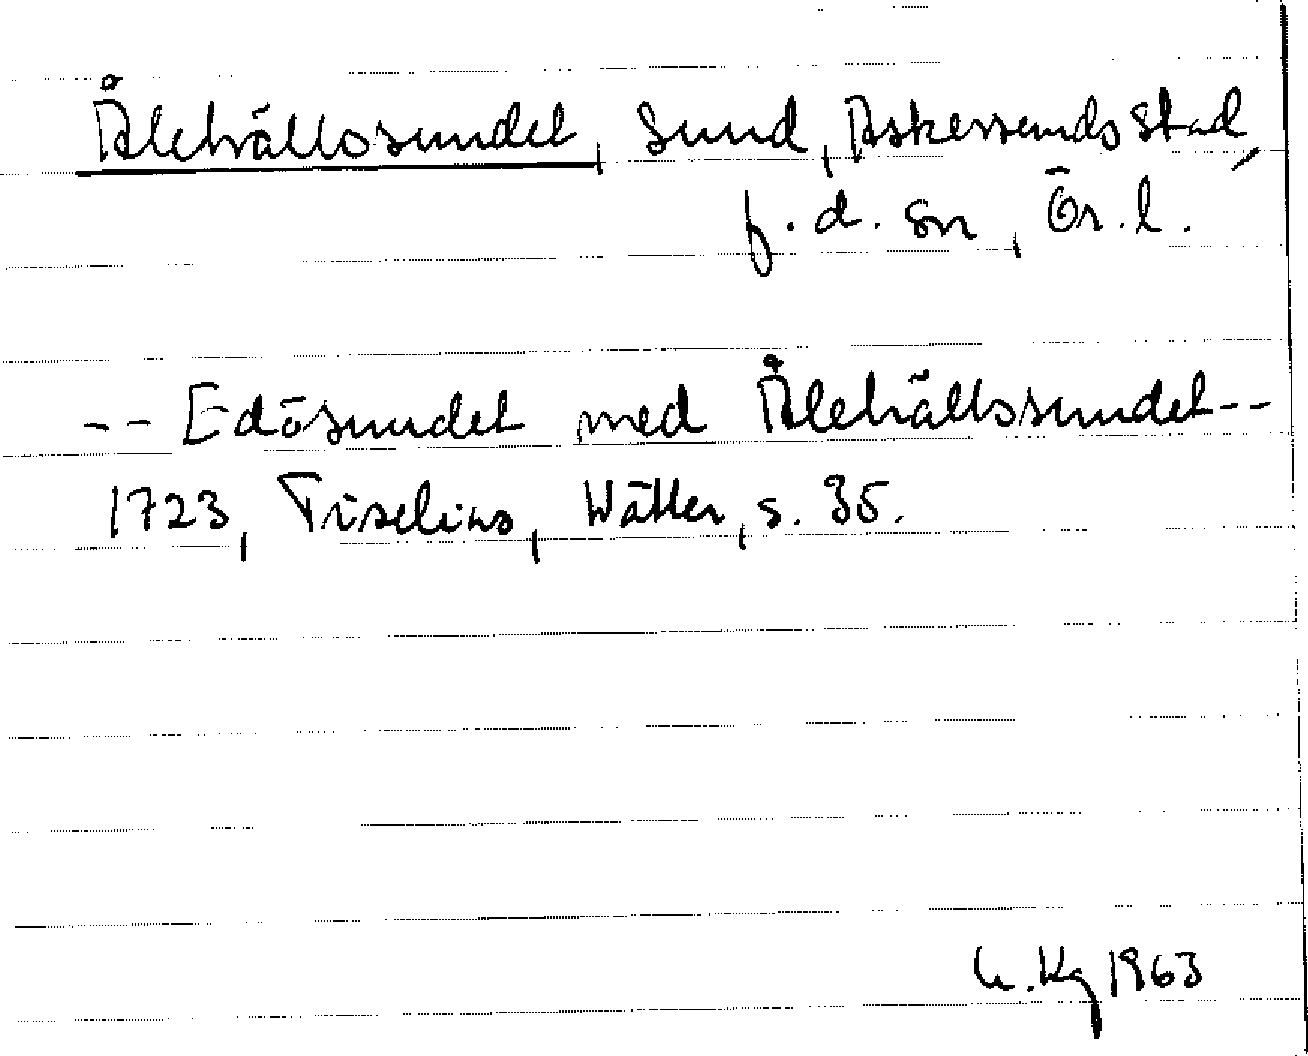 Ålehällssundet, sund, Askersunds stad,
f.d. sn, Ör.l.
-- Edösundet med Ålehällssundet --
1723, Tiselius, Wätter, s. 35.
U.Kg 1963